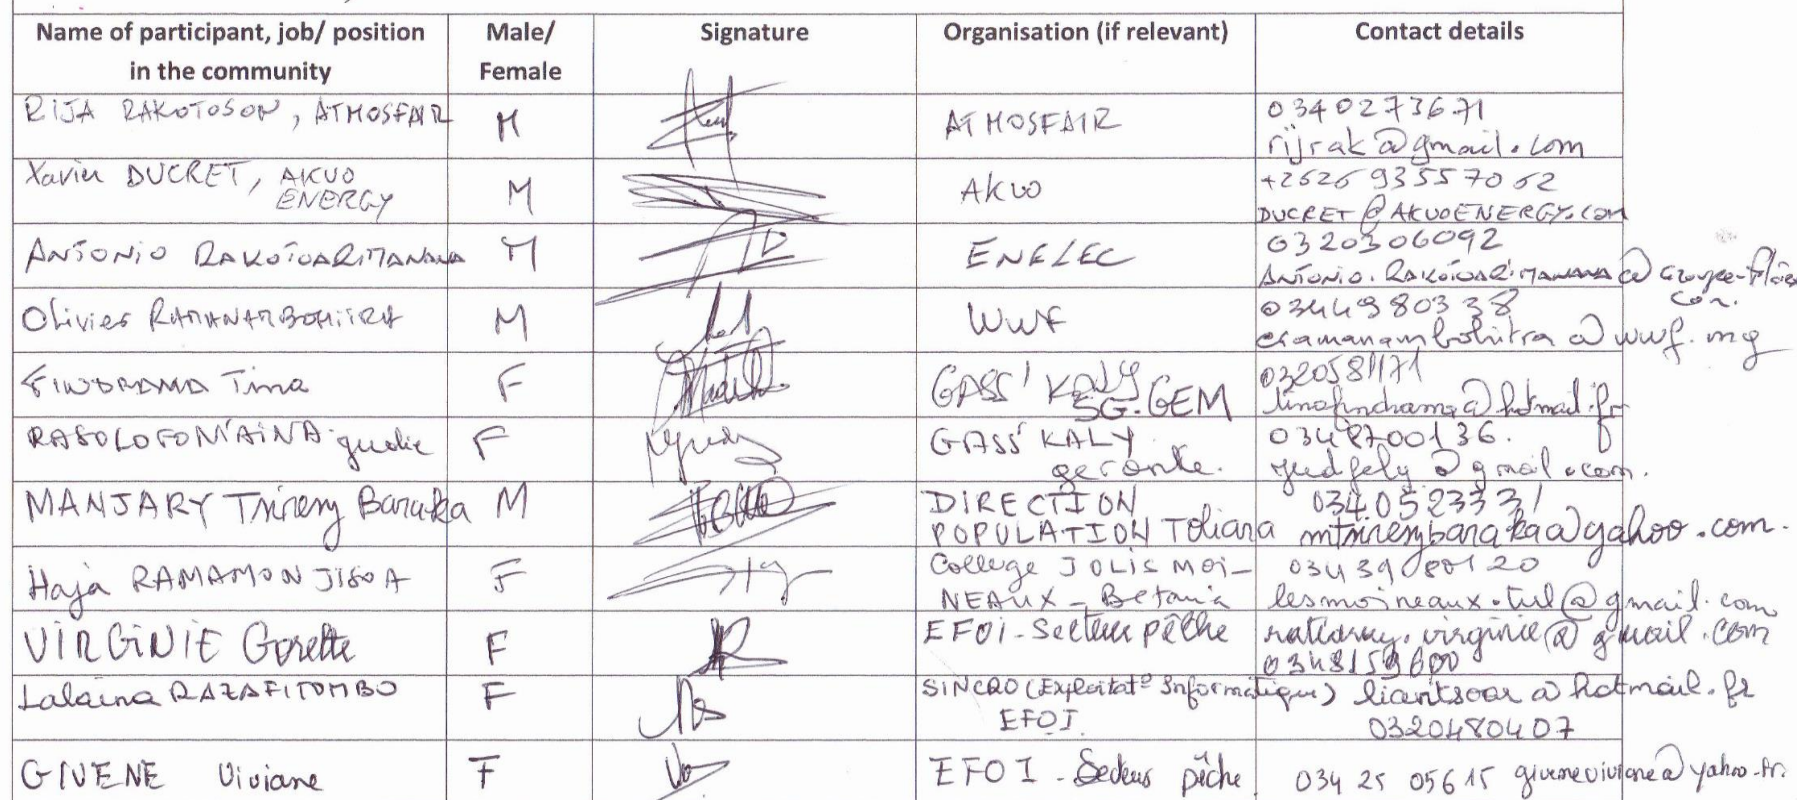 Name of participant, job/ position in the community Male/ Female Signature Organisation (if relevant) Contact details
RIJA RAKOTOSON, ATMOSFAIR M ATMOSFAIR 0340273671
rijrak@gmail.com
Xavier DUCRET, AKUO ENERGY M AKUO +262693557062
DUCRET@AKUOENERGY.COM
ANTONIO RAKOTOARIMANANA M ENELEC 0320306092
ANTONIO.RAKOTOARIMANANA@
Olivier M WWF 0344980338
@wwf.mg
Tina F GASS' KALY
SG.GEM
RASOLOFONIAINA F GASS' KALY 0348700136.
gerante. @gmail.com.
MANJARY Tsireny Baraka M DIRECTION
POPULATION Toliara mtsirenybaraka@yahoo.com.
Haja RAMAMONJISOA F College JOLIS MOI-
NEAUX - Betania lesmoineaux.tul@gmail.com
VIRGINIE Gorette F EFOI - Secteur pêche virginie@gmail.com
Lalaina RAZAFITOMBO F SINCRO (Exploitat° Informatique) liantsoar@hotmail.fr
EFOI 0320480407
GIVENE Viviane F EFOI - Secteur pêche 034 25 056 15 giveneviviane@yahoo.fr